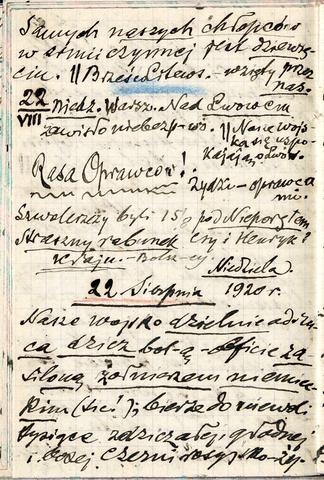 Samych naszych chłopców
w atmii czynnej jest dziewię-
ciu. || Brześć Litews. - wzięty przez
nas.
22 niedz. Warsz. Nad Lwowem
VIII zawisło niebezp-wo. || Nasze wojs-
ka się uspo-
kajają, odwr.
Rasa Oprawców!
Żydzi - oprawca
mi.
Szwoleżery byli 15 pod Nieporętem
Straszny rabunek czy i Henryk?
w kraju. - Bolsz-cy.
Niedziela.
22 Sierpnia 1920 r.
Nasze wojsko dzielnie odrzu-
ca dzicz bol-ą - oficie za
siloną żołnierzem niemie-
ckim (sic!); bierze do niewoli
tysiące zdziczałej, głodnej
i bosej czerni rosyjsko-ży-